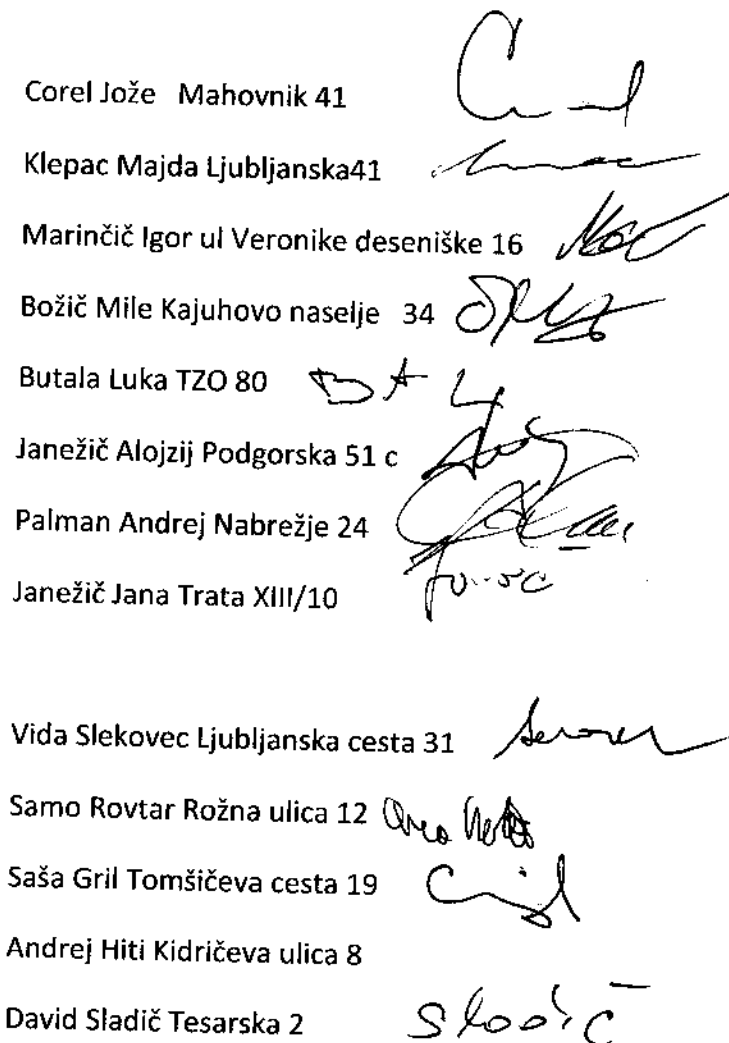 Corel Jože Mahovnik 41
Klepac Majda Ljubljanska41
Marinčič Igor ul Veronike deseniške 16
Božič Mile Kajuhovo naselje 34
Butala Luka TZO 80
Janežič Alojzij Podgorska 51 c
Palman Andrej Nabrežje 24
Janežič Jana Trata XIII/10
Vida Slekovec Ljubljanska cesta 31
Samo Rovtar Rožna ulica 12
Saša Gril Tomšičeva cesta 19
Andrej Hiti Kidričeva ulica 8
David Sladič Tesarska 2